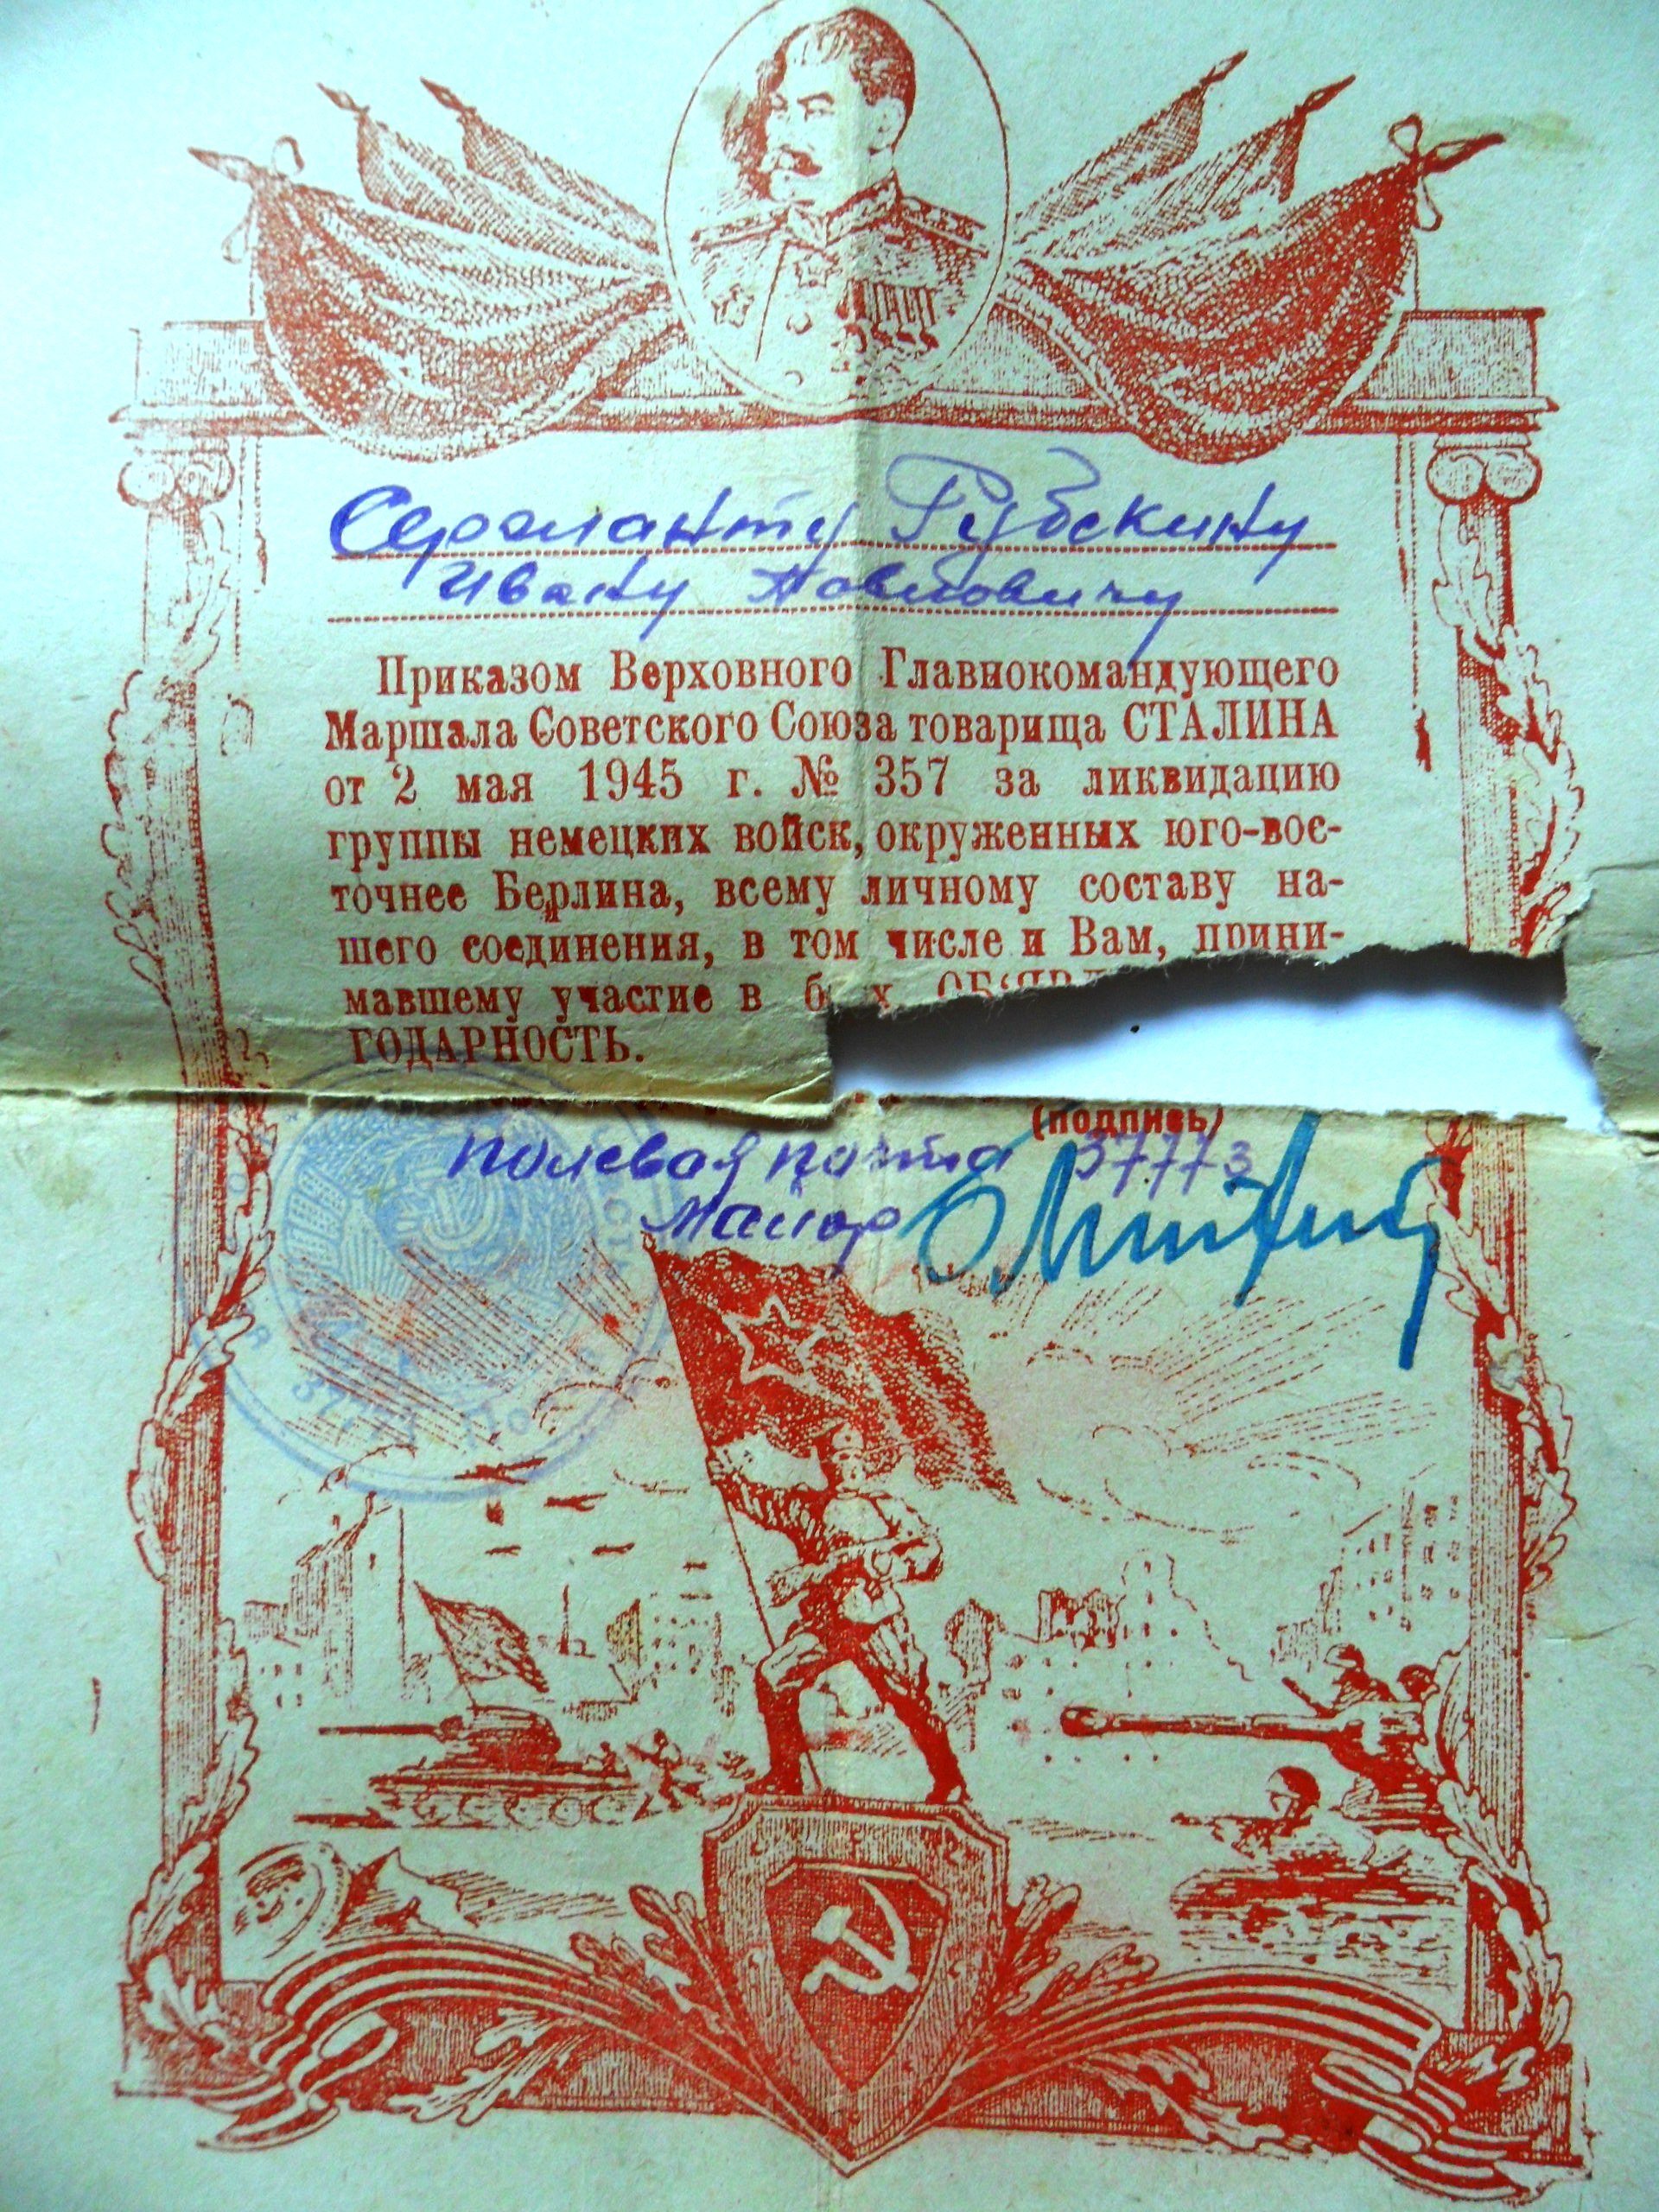 Сержанту Губскину
Ивану Павловичу
Приказом Верховного Главнокомандующего
Маршала Советского Союза товарища СТАЛИНА
от 2 мая 1945 г. № 357 за ликвидацию
группы немецких войск, окруженных юго-вос-
точнее Берлина, всему личному составу на-
шего соединения, в том числе и Вам, прини-
мавшему участие в б х, ОБ‘ЯВЛ
ГОДАРНОСТЬ.
(подпись)
полевая почта 37773
Майор